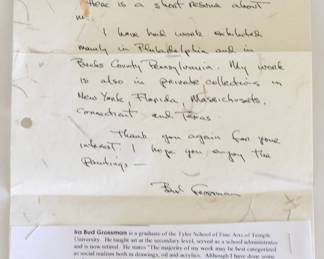 Here is a short resume about
me.
I have had work exhibited
mainly in Philadelphia and in
Bucks County Pennsylvania. My work
is also in private collections in
New York, Florida, Massachusets,
Connecticut and Texas
Thank you again for your
interest I hope you enjoy the
Paintings —
Bud Grossman
Ira Bud Grossman is a graduate of the Tyler School of Fine Arts of Temple
University. He taught art at the secondary level, served as a school administrator
and is now retired. He states "The majority of my work may be best categorized
as social realism both in drawings, oil and acrylics. Although I have done some